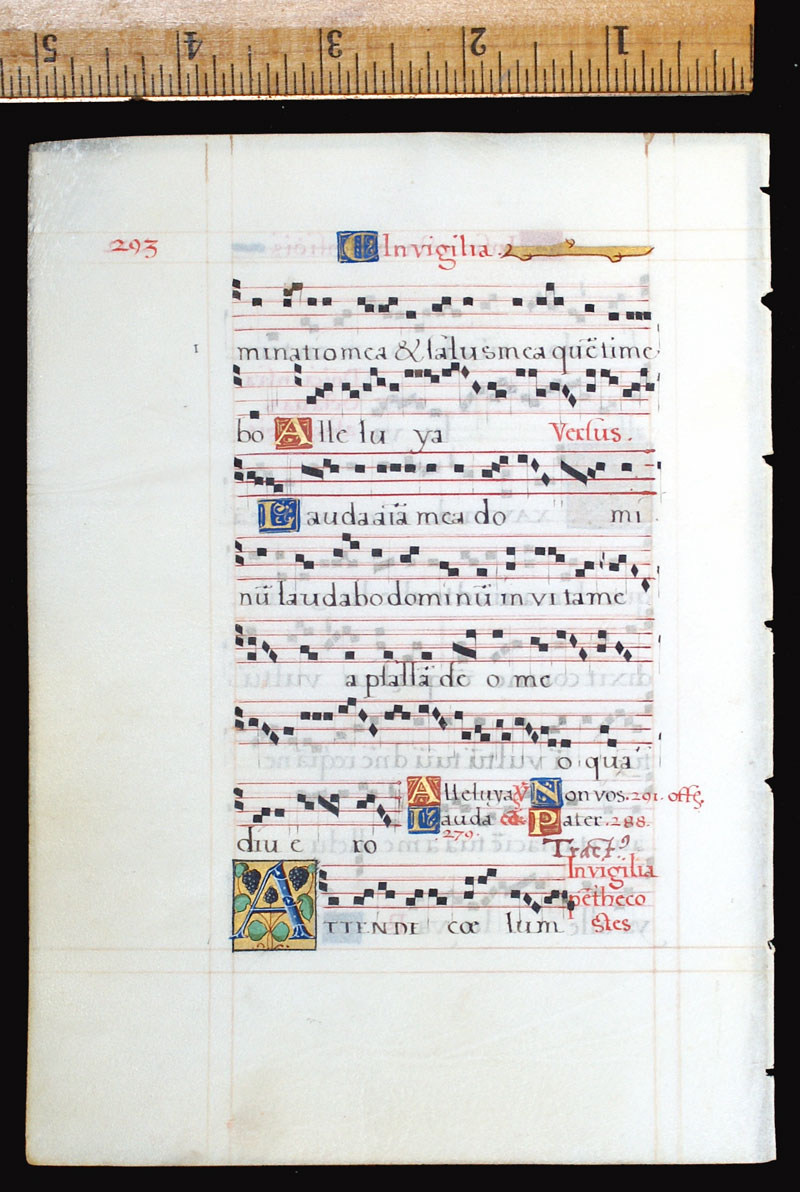 5 4 3 2 1
293 In vigilia.
I
minatio mea & salus mea quē time
bo Alleluya Versus.
Lauda aīa mea do mi
nū laudabo dominū in vita me
a psallā de o me
o quā
Alleluya ℣ Non vos. 291. offꝫ.
Lauda Pater. 288.
279.
diu e ro
Tractꝰ
In vigilia
pētheco
stes
ATTENDE cœ lum